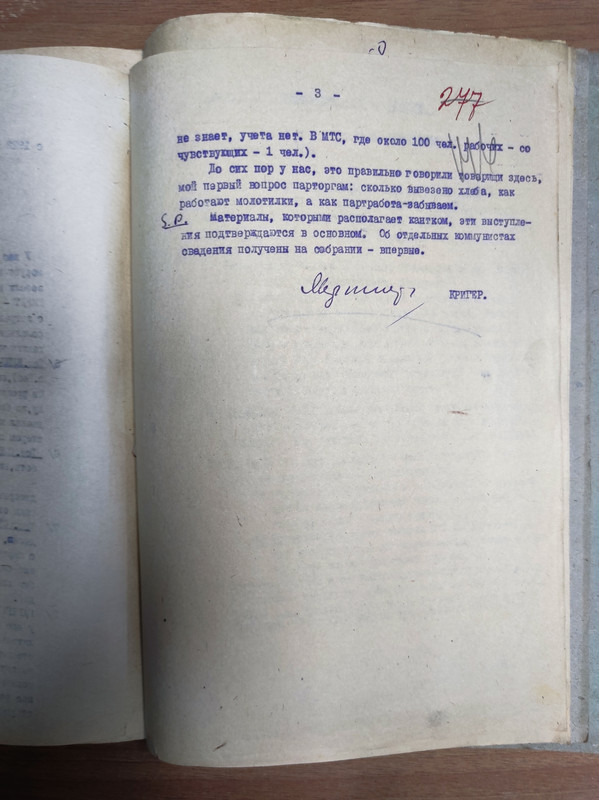 - 3 -
277
не знает, учета нет. В МТС, где около 100 чел. рабочих - со
чувствующих - 1 чел.).
До сих пор у нас, это правильно говорили товарищи здесь,
мой первый вопрос парторгам: сколько вывезено хлеба, как
работают молотилки, а как партработа-забываем.
Материалы, которыми располагает кантком, эти выступле-
ния подтверждаются в основном. Об отдельных коммунистах
сведения получены на собрании - впервые.
КРИГЕР.